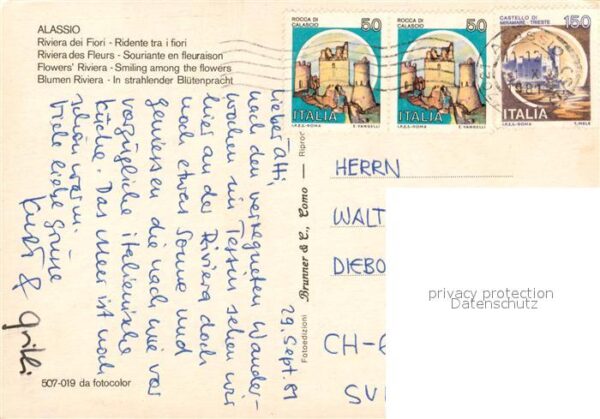 ALASSIO
Riviera dei Fiori - Ridente tra i fiori
Riviera des Fleurs - Souriante en fleuraison
Flowers' Riviera - Smiling among the flowers
Blumen Riviera - In strahlender Blütenpracht
ROCCA DI CALASCIO
50
ITALIA
I.P.Z.S.-ROMA E. VANGELLI
ROCCA DI CALASCIO
50
ITALIA
I.P.Z.S.-ROMA E. VANGELLI
CASTELLO DI MIRAMARE, TRIESTE
150
ITALIA
I.P.Z.S.-ROMA
29. Sept. 81
nach den verregneten Wander-
wochen im Tessin sehen wir
hier an der Riviera doch
noch etwas Sonne und
geniessen die nach wie vor
vorzügliche italienische
Küche. Das Meer ist noch
schön warm.
Viele liebe Grüsse
Kurt &
Fotoedizioni Brunner & C., Como - Ripro
HERRN
WALT
DIEBO
CH-
SV
privacy protection
Datenschutz
507-019 da fotocolor